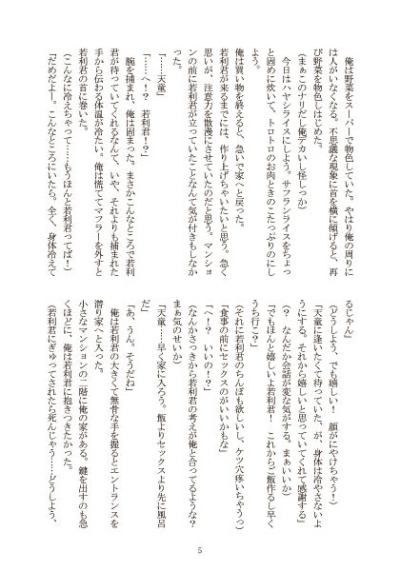 俺は野菜をスーパーで物色していた。やはり俺の周りに
は人がいなくなる。不思議な現象に首を横に傾げると、再
び野菜を物色しはじめた。
（まぁこのナリだし俺デカいし怪しっか）
　今日はハヤシライスにしよう。サフランライスをちょっ
と固めに炊いて、トロトロのお肉ときのこたっぷりのにし
よう。
　俺は買い物を終えると、急いで家へと戻った。
若利君が来るまでには、作り上げちゃいたいと思う。急ぐ
思いが、注意力を散漫にさせていたのだと思う。マンショ
ンの前に若利君が立っていたことなんて気が付きもしなか
った。
「……天童」
「……へ！？　若利君！？」
　腕を捕まれ、俺は固まった。まさかこんなところで若利
君が待っていてくれるなんて、いや、それよりも捕まれた
手から伝わる体温が冷たい。俺は慌ててマフラーを外すと
若利君の首に巻いた。
（こんなに冷えちゃって……もうほんと若利君ってば！）
「だめだよー。こんなところにいたら。全く、身体冷えて
るじゃん」
（どうしよう、でも嬉しい！　顔がにやけちゃう！）
「天童に逢いたくて待っていた、が、身体は冷やさないよ
うにする。それから嬉しいと思っていてくれて感謝する」
（？　なんだか会話が変な気がする。まぁいいか）
「でもほんと嬉しいよ若利君！　これからご飯作るし早く
うち行こ？」
（それに若利君のちんぽも欲しいし、ケツ穴疼いちゃうっ）
「へ！？　いいの！？」
「食事の前にセックスのがいいかもな」
（なんかさっきから若利君の考えが俺と合ってるような？
まぁ気のせいか）
「天童……早く家に入ろう。飯よりセックスより先に風呂
だ」
「あ、うん。そうだね」
　俺は若利君の大きくて無骨な手を握るとエントランスを
潜り家へと入った。
小さなマンションの二階に俺の家がある。鍵を出すのも急
くほどに、俺は若利君に抱きつきたかった。
（若利君にぎゅってされたら死んじゃう……どうしよう、
5